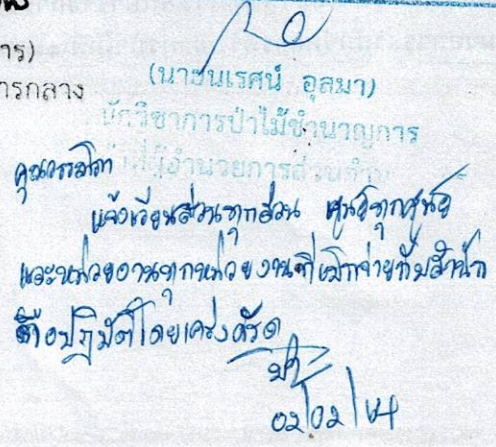 าร)
ารกลาง
(นายนเรศน์ อุลมา)
นักวิชาการป่าไม้ชำนาญการ
อำนวยการส่วน
คุณวรรณิภา
แจ้งเวียนส่วนทุกส่วน ศูนย์ทุกศูนย์
และหน่วยงานทุกหน่วยงานที่เบิกจ่ายกับสำนัก
ถือปฏิบัติโดยเคร่งครัด
02/02/64